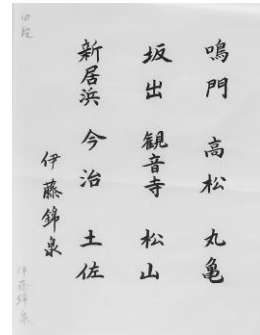 鳴門 高松 丸亀
坂出 観音寺 松山
新居浜 今治 土佐
伊藤錦泉
四段
伊藤錦泉